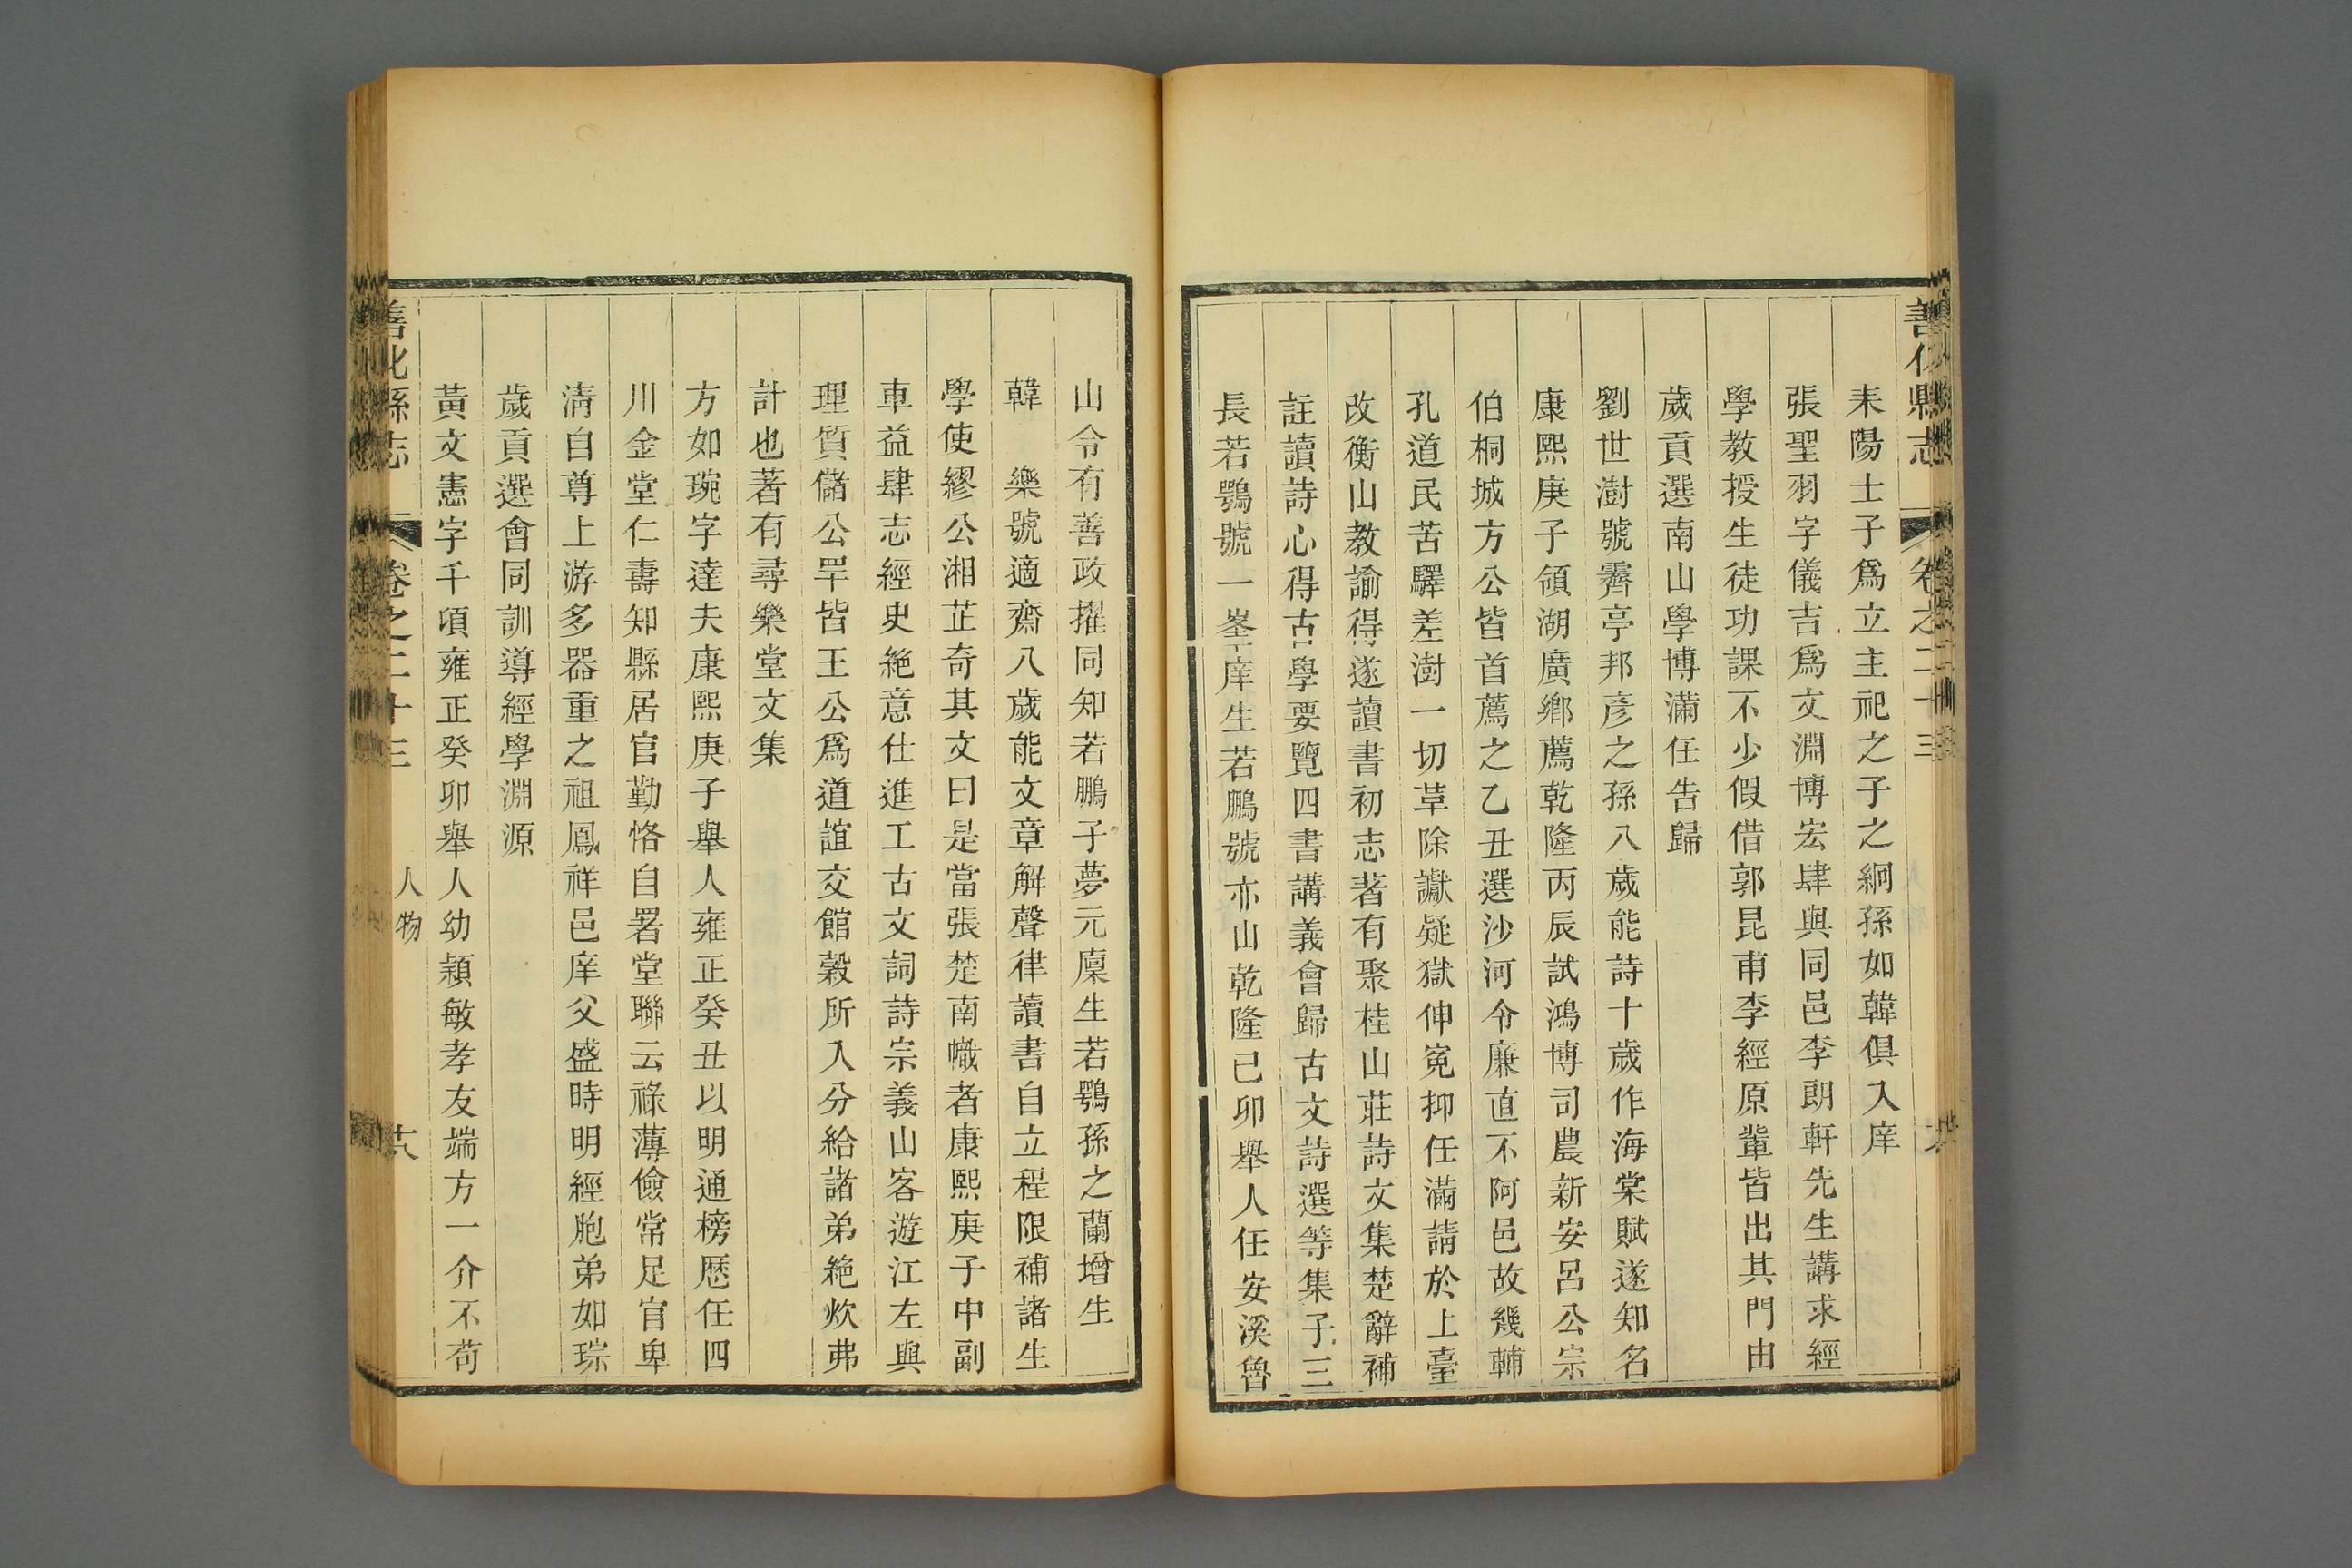 善化縣志
卷之二十三
耒陽士子爲立主祀之子之絅孫如韓俱入庠
張聖羽字儀吉爲文淵博宏肆與同邑李朗軒先生講求經
學教授生徒功課不少假借郭昆甫李經原輩皆出其門由
歲貢選南山學博滿任告歸
劉世澍號霽亭邦彥之孫八歲能詩十歲作海棠賦遂知名
康熙庚子領湖廣鄉薦乾隆丙辰試鴻博司農新安呂公宗
伯桐城方公皆首薦之乙丑選沙河令廉直不阿邑故幾輔
孔道民苦驛差澍一切草除讞疑獄伸寃抑任滿請於上臺
改衡山教諭得遂讀書初志著有聚桂山莊詩文集楚辭補
註讀詩心得古學要覽四書講義會歸古文詩選等集子三
長若鶚號一峯庠生若鵬號亦山乾隆己卯舉人任安溪魯
山令有善政擢同知若鵬子夢元廩生若鶚孫之蘭增生
韓　樂號適齋八歲能文章解聲律讀書自立程限補諸生
學使繆公湘芷奇其文曰是當張楚南幟者康熙庚子中副
車益肆志經史絕意仕進工古文詞詩宗義山客遊江左與
理質儲公罕皆王公爲道誼交館穀所入分給諸弟絕炊弗
計也著有尋樂堂文集
方如琬字達夫康熙庚子舉人雍正癸丑以明通榜歷任四
川金堂仁壽知縣居官勤恪自署堂聯云祿薄儉常足官卑
淸自尊上游多器重之祖鳳祥邑庠父盛時明經胞弟如琮
歲貢選會同訓導經學淵源
黃文憲字千頃雍正癸卯舉人幼穎敏孝友端方一介不苟
善化縣志
卷之二十三
人物